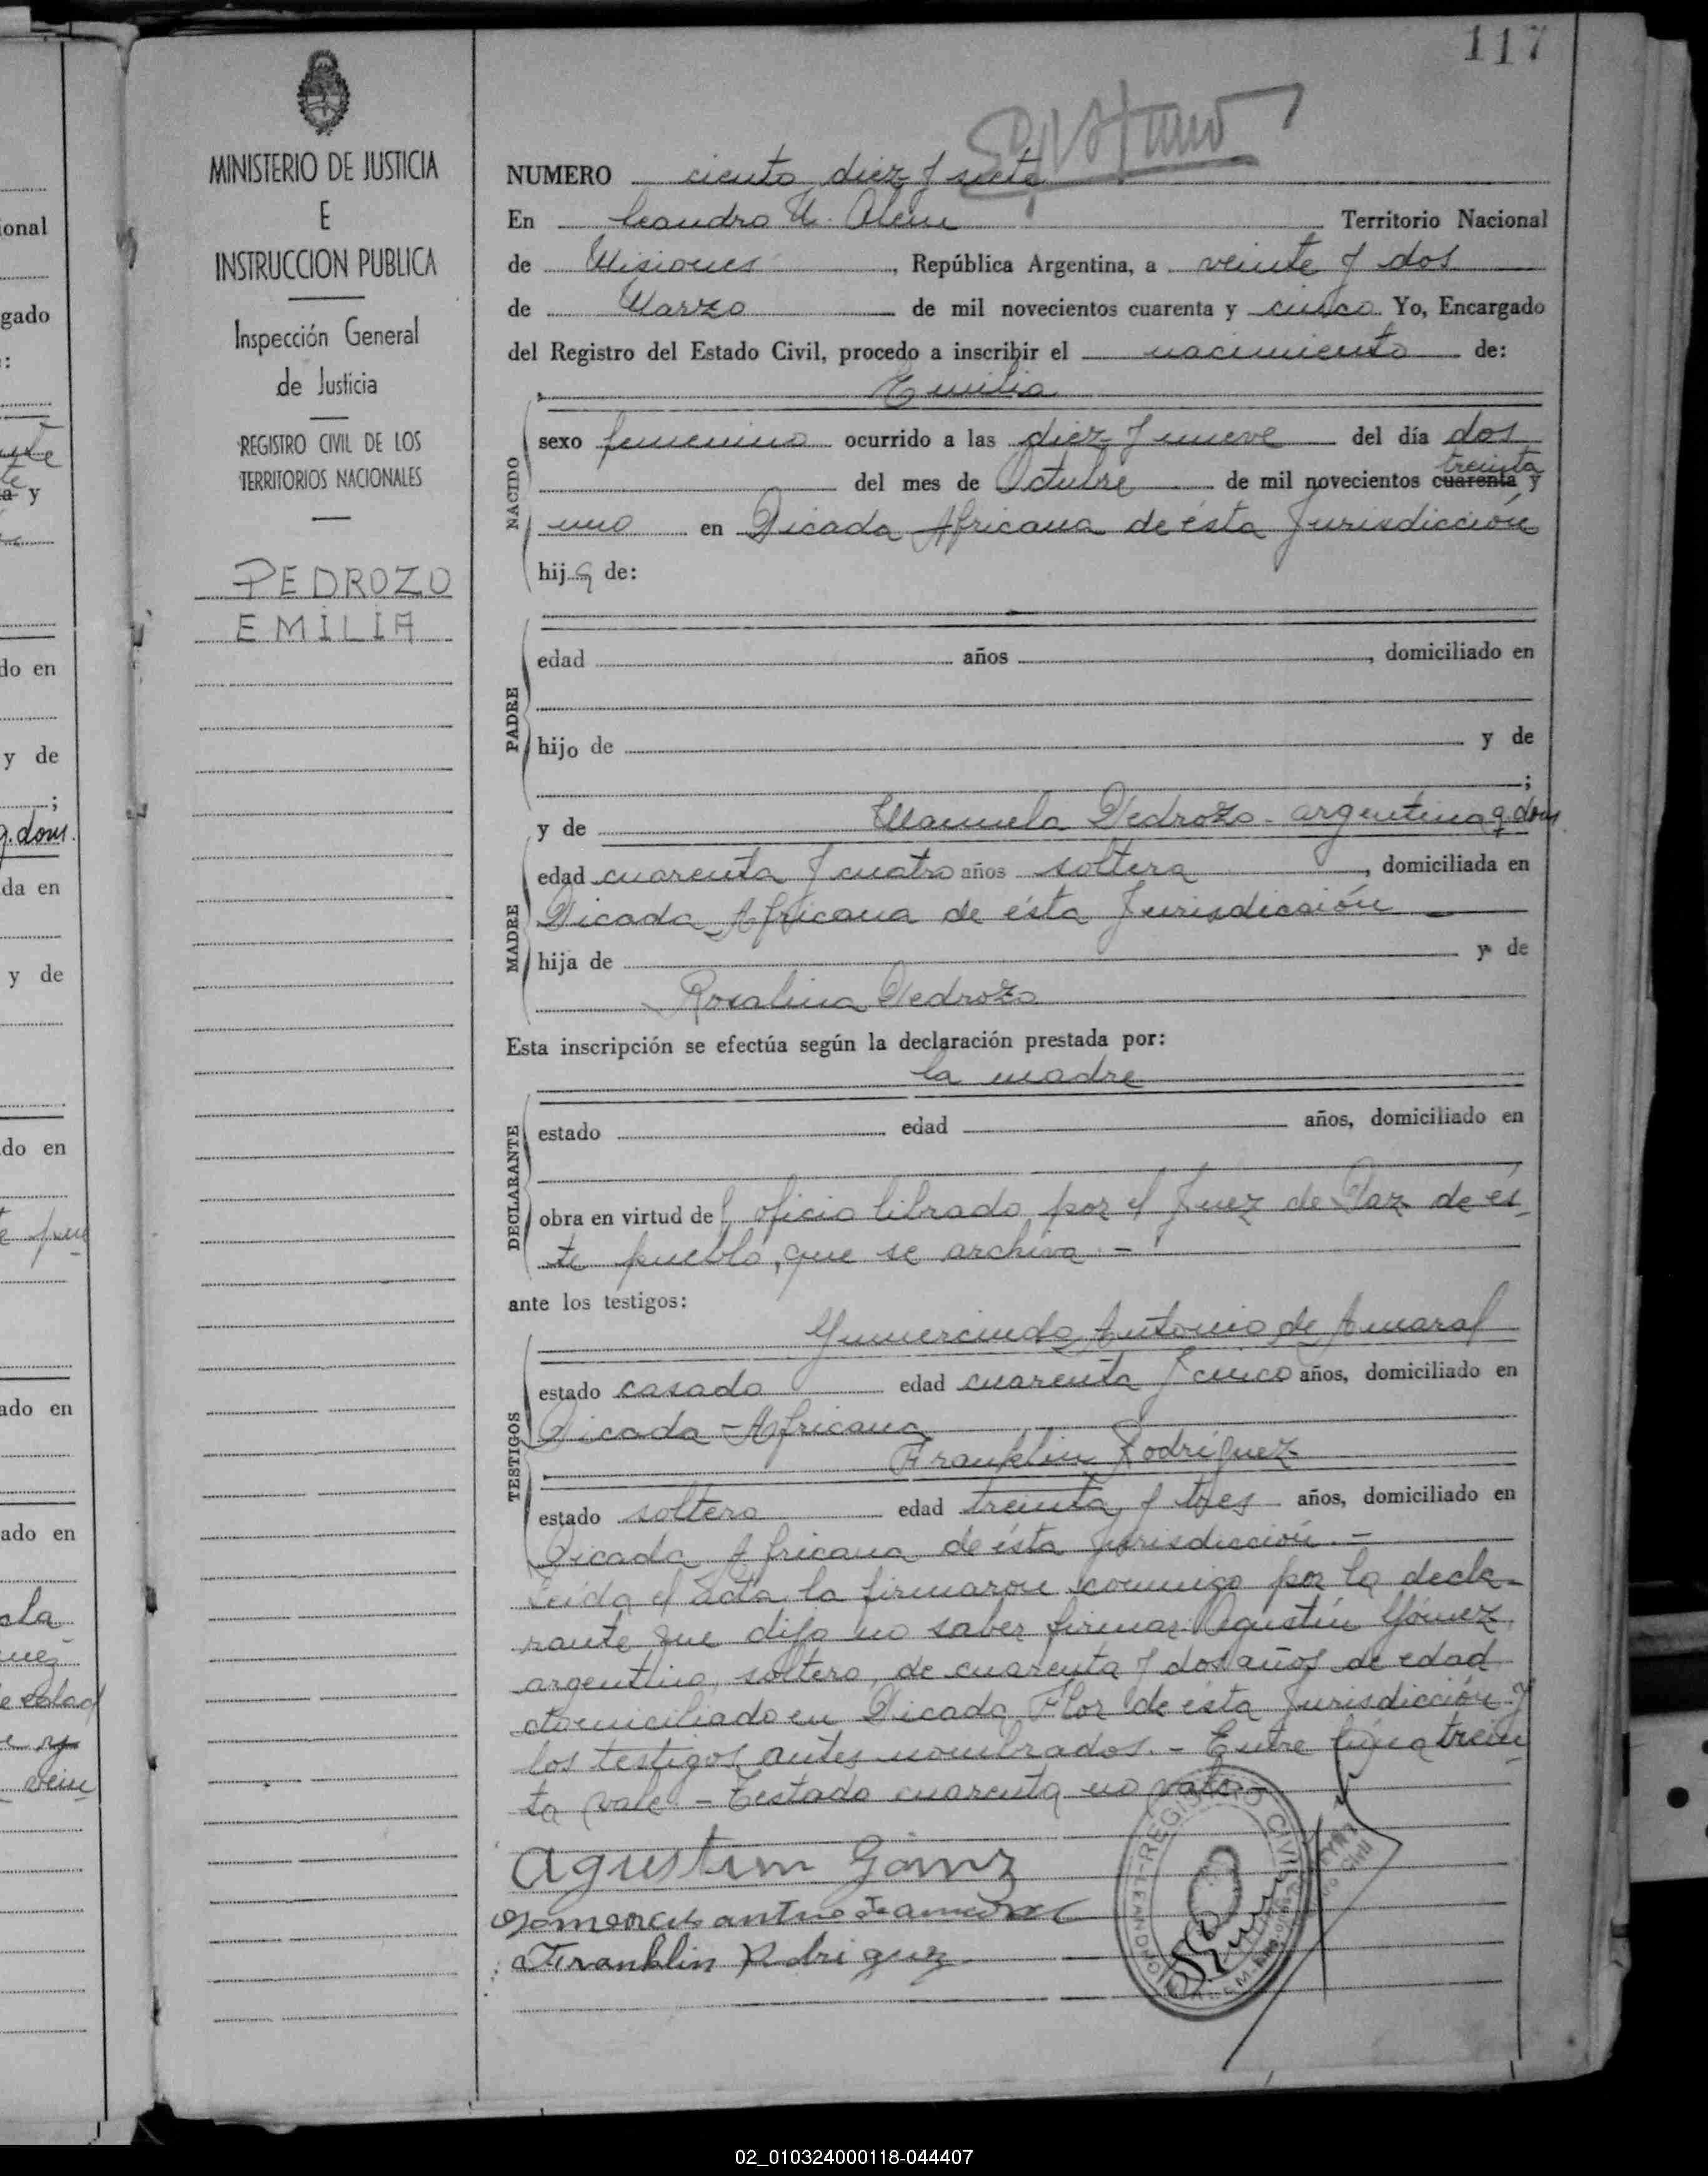 117
MINISTERIO DE JUSTICIA
E
INSTRUCCION PUBLICA
Inspección General
de Justicia
REGISTRO CIVIL DE LOS
TERRITORIOS NACIONALES
PEDROZO
EMILIA
NUMERO ciento diez y siete
En Leandro N. Alem Territorio Nacional
de Misiones, República Argentina, a veinte y dos
de Marzo de mil novecientos cuarenta y cinco Yo, Encargado
del Registro del Estado Civil, procedo a inscribir el nacimiento de:
Emilia
NACIDO
sexo femenino ocurrido a las diez y nueve del día dos
treinta
del mes de Octubre de mil novecientos cuarenta y
uno en Picada Africana de ésta Jurisdicción
hija de:
PADRE
edad años , domiciliado en
hijo de y de
;
MADRE
y de Manuela Pedrozo - argentina q. dom.
edad cuarenta y cuatro años soltera , domiciliada en
Picada Africana de ésta Jurisdicción
hija de y de
Rosalina Pedrozo
Esta inscripción se efectúa según la declaración prestada por:
la madre
DECLARANTE
estado edad años, domiciliado en
obra en virtud del oficio librado por el Juez de Paz de és
te pueblo, que se archiva. -
ante los testigos:
TESTIGOS
Gumercindo Antonio de Amaral
estado casado edad cuarenta y cinco años, domiciliado en
Picada Africana
Franklin Rodríguez
estado soltero edad treinta y tres años, domiciliado en
Picada Africana de ésta Jurisdicción. -
Leída el acta la firmaron conmigo por la decla-
rante que dijo no saber firmar Agustín Gómez
argentino, soltero, de cuarenta y dos años de edad
domiciliado en Picada Flor de ésta Jurisdicción y
los testigos antes nombrados. - Entre línea trein
ta vale - Testado cuarenta no vale. -
agustin Gomz
Franklin Rodriguez
REGISTRO CIVIL
02_010324000118-044407
ional
gado
:
y
do en
y de
;
q. dom.
da en
y de
do en
ado en
ado en